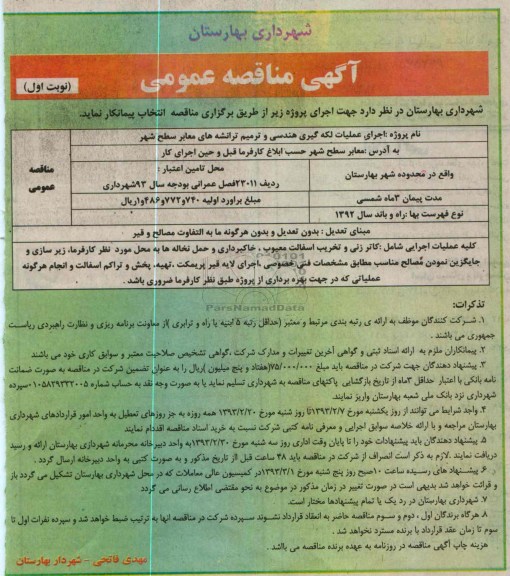 شهرداری بهارستان
آگهی مناقصه عمومی
(نوبت اول)
شهرداری بهارستان در نظر دارد جهت اجرای پروژه زیر از طریق برگزاری مناقصه انتخاب پیمانکار نماید.
مناقصه عمومی
نام پروژه :اجرای عملیات لکه گیری هندسی و ترمیم ترانشه های معابر سطح شهر
به آدرس :معابر سطح شهر حسب ابلاغ کارفرما قبل و حین اجرای کار
واقع در محدوده شهر بهارستان
محل تامین اعتبار :
ردیف ۲۳۰۱۱فصل عمرانی بودجه سال ۹۳شهرداری
مدت پیمان ۳ماه شمسی
مبلغ براورد اولیه ۷۴۰و۷۷۲و۴۸۶و۱ریال
نوع فهرست بها :راه و باند سال ۱۳۹۲
مبنای تعدیل : بدون تعدیل و بدون هرگونه ما به التفاوت مصالح و قیر
کلیه عملیات اجرایی شامل :کاتر زنی و تخریب اسفالت معیوب ، خاکبرداری و حمل نخاله ها به محل مورد نظر کارفرما، زیر سازی و
جایگزین نمودن مصالح مناسب مطابق مشخصات فنی خصوصی ،اجرای لایه قیر پریمکت ،تهیه، پخش و تراکم اسفالت و انجام هرگونه
عملیاتی که در جهت بهره برداری از پروژه طبق نظر کارفرما ضروری باشد .
ParsNamadData
تذکرات:
۱. شرکت کنندگان موظف به ارائه ی رتبه بندی مرتبط و معتبر (حداقل رتبه ۵ ابنیه یا راه و ترابری )از معاونت برنامه ریزی و نظارت راهبردی ریاست
جمهوری می باشند .
۲. پیمانکاران ملزم به ارائه اسناد ثبتی و گواهی آخرین تغییرات و مدارک شرکت ،گواهی تشخیص صلاحیت معتبر و سوابق کاری خود می باشند
۳. پیشنهاد دهندگان جهت شرکت در مناقصه باید مبلغ ۷۵/۰۰۰/۰۰۰(هفتاد و پنج میلیون )ریال را به عنوان تضمین شرکت در مناقصه به صورت ضمانت
نامه بانکی با اعتبار حداقل ۳ماه از تاریخ بازگشایی پاکتهای مناقصه به شهرداری تسلیم نماید یا به صورت وجه نقد به حساب شماره ۰۱۰۵۸۲۹۳۳۲۰۰۵سپرده
شهرداری نزد بانک ملی شعبه بهارستان واریز نمایند.
۴. واجد شرایط می توانند از روز یکشنبه مورخ ۱۳۹۳/۲/۷تا روز شنبه مورخ ۱۳۹۳/۲/۲۰ همه روزه به جز روزهای تعطیل به واحد امور قراردادهای شهرداری
بهارستان مراجعه و با ارائه خلاصه سوابق اجرایی و معرفی نامه کتبی شرکت نسبت به خرید اسناد مناقصه اقدام نمایند
۵. پیشنهاد دهندگان باید پیشنهادات خود را تا پایان وقت اداری روز سه شنبه مورخ ۱۳۹۳/۲/۳۰به واحد دبیرخانه محرمانه شهرداری بهارستان ارائه و رسید
دریافت نمایند .لازم به ذکر است انصراف از شرکت در مناقصه باید ۴۸ ساعت قبل از تاریخ مذکور و به صورت کتبی به واحد دبیرخانه ارسال گردد .
۶. پیشنهاد های رسیده ساعت ۱۰صبح روز پنج شنبه مورخ ۱۳۹۳/۳/۱در کمیسیون عالی معاملات که در محل شهرداری بهارستان تشکیل می گردد باز
و قرائت خواهد شد بدیهی است در صورت تغییر در زمان مذکور در موضوع به نحو مقتضی اطلاع رسانی می گردد
۷. شهرداری بهارستان در رد یک یا تمام پیشنهادها مختار است.
۸. هرگاه برندگان اول ، دوم و سوم مناقصه حاضر به انعقاد قرارداد نشوند سپرده شرکت در مناقصه انها به ترتیب ضبط خواهد شد و سپرده نفرات اول تا
سوم تا زمان عقد قرارداد با برنده مسترد نخواهد شد .
هزینه چاپ آگهی مناقصه در روزنامه به عهده برنده مناقصه می باالشد .
مهدی فاتحی – شهردار بهارستان